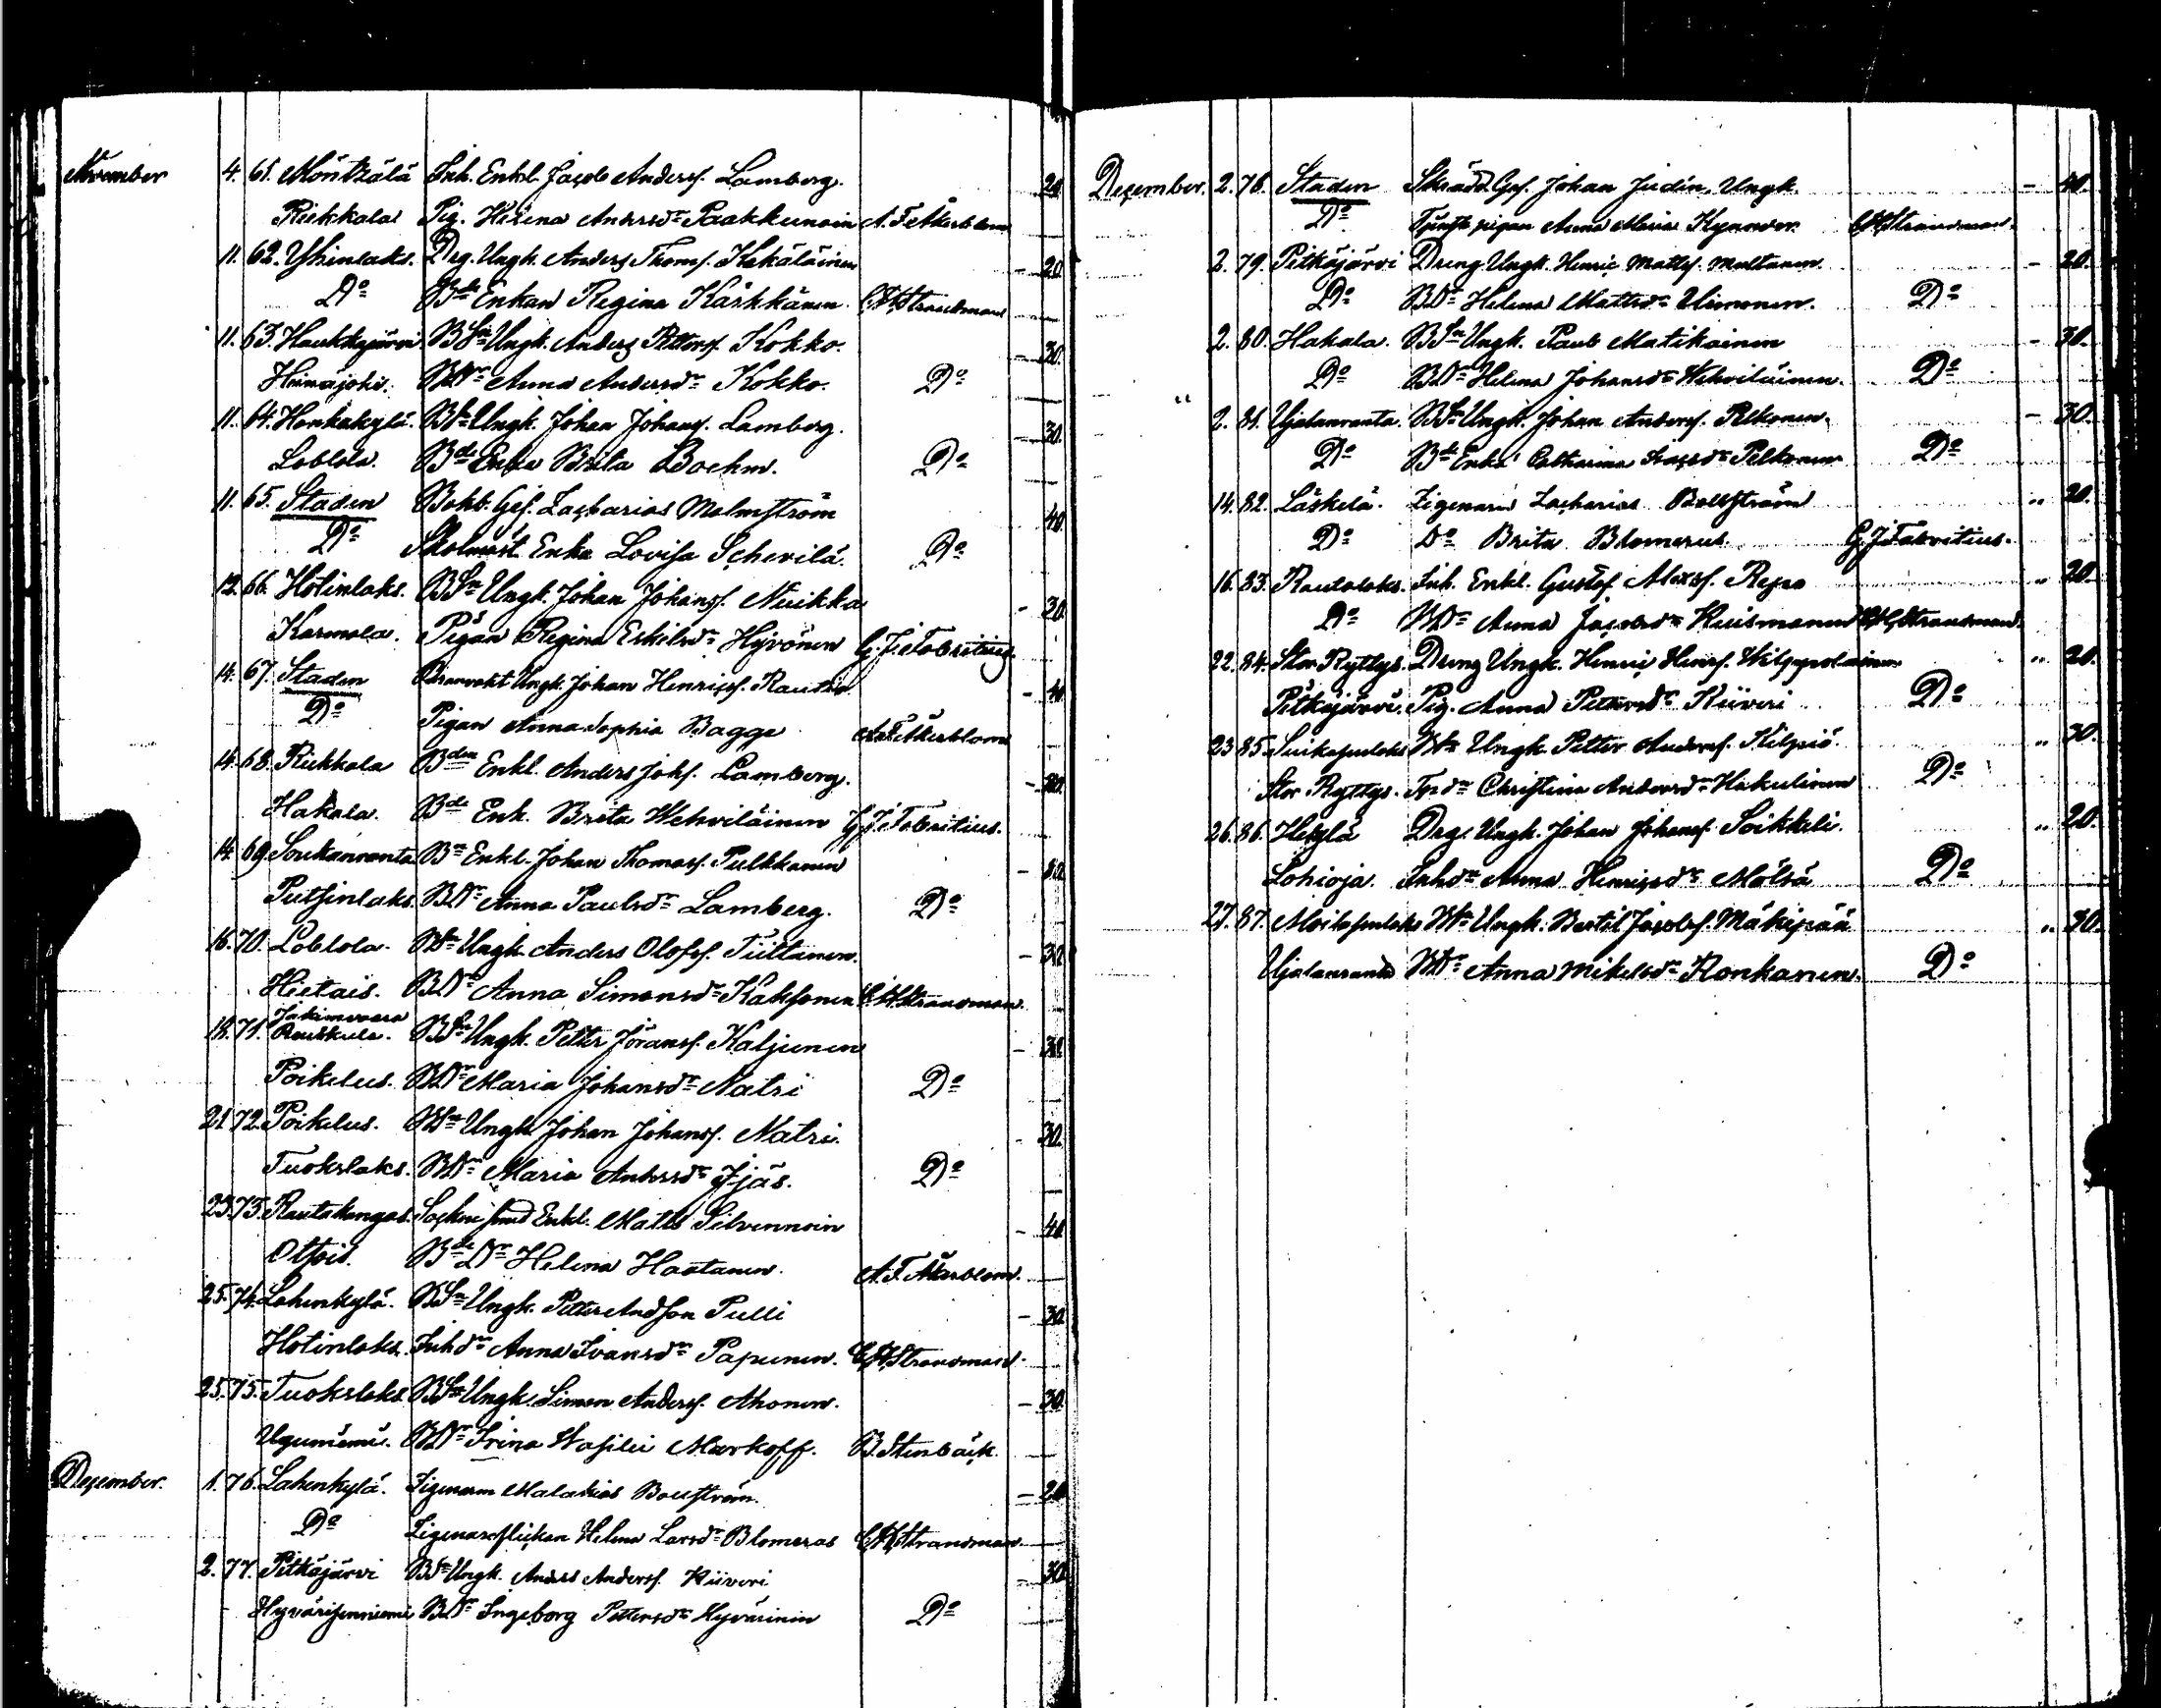 November 4. 61. Möntsälä Inh. Enkl. Jacob Anderss. Lamberg. 20.
Riekkala Pig. Helena Andersdr Paakkunain A. F. Åkerblom
11. 62. Yhinlaks. Drg. Ungk. Anders Thoms. Kekäläinen - 20.
Do Bde Enkan Regina Kärkkänen. C. H. Strandman
11. 63. Haukkajärvi BSn Ungk. Anders Petterss. Kokko. - 30.
Heinäjoki. BDr Anna Andersdr Kokko. Do
11. 64. Honkakylä. BSn Ungk. Johan Johanss. Lamberg. - 30.
Loblola. Bde Enka Brita Boehm. Do
11. 65. Staden Bokb. Ges. Zacharias Malmström 40.
Do Skolmäst. Enka Lovisa Schevilä. Do
12. 66. Hotinlaks. BSn Ungk. Johan Johanss. Nuikka - 30.
Karmala. Pigan Regina Eskilsdr Hyvönen G. J. Fabritius.
14. 67. Staden Ungk. Johan Henricss. Rautio. - 40
Do Pigan Anna Sophia Bagge A. F. Åkerblom
14. 68. Riekkala Bden Enkl. Anders Johs. Lamberg.
Hakala. Bde Enk. Brita Wehviläinen G. J. Fabritius.
14. 69. Sorikanranta Bn Enkl. Johan Thomass. Pulkkanen
Putsinlaks. BDr Anna Paulsdr Lamberg. Do
16. 70. Loblola. BSn Ungk. Anders Olofss. Tiittanen. - 30
Hietais. BDr Anna Simonsdr Kaksonen C. H. Strandman.
18. 71. Jakimvaara Raukkula. BSn Ungk. Petter Jöranss. Kaljunen - 30
Poikelus. BDr Maria Johansdr Natri Do
21. 72. Poikelus. BSn Ungk. Johan Johanss. Natri. - 30.
Tuokslaks. BDr Maria Andersdr Jjäs. Do
23. 73. Rautakangas. Enkl. Matts Silvennoin - 40
Otsois. Bde Dr Helena Haatanen. A. F. Åkerblom.
25. 74. Lahenkylä. BSn Ungk. Petter Andsson Pulli - 30
Hotinlaks. Inhdr Anna Ivansdr Papunen. C. H. Strandman.
25. 75. Tuokslaks. BSn Ungk. Simon Anderss. Ahonen. - 30
Uguniemi. BDr Irina Wasilei Markoff. B. Stenbäck.
December. 1. 76. Lahenkylä. Zigenaren Malakias Bollström. - 20
Do Zigenarflickan Helena Larsdr Blomerus C. H. Strandman.
2. 77. Pitkäjärvi BSn Ungk. Anders Anderss. Kiiveri - 30
Hyvärisenniemi BDr Ingeborg Pettersdr Hyvärinen Do
December. 2. 78. Staden Skrädd. Ges. Johan Judin, Ungk. - 40.
Do Tjenste pigan Anna Maria Kynnder. C. H. Strandman.
2. 79. Pitkäjärvi Dreng Ungk. Henric Mattss. Multanen - 20.
Do BDr Helena Mattsdr Uimonen. Do
2. 80. Hakala. BSn Ungk. Paul Matikainen - 30.
Do BDr Helena Johansdr Wehviläinen. Do
2. 81. Ujalanranta BSn Ungk. Johan Anderss. Pelkonen. - 30.
Do Bde Enka Catharina Isacsdr Pelkonen Do
14. 82. Läskelä. Zigenaren Zacharias Bollström " 20.
Do Do Brita Blomerus. G. J. Fabritius.
16. 83. Rautalaks. Inh. Enkl. Gustaf Alexss. Repo " 20.
Do BDr Anna Jacobsdr Huismann C. H. Strandman.
22. 84. Stor Ryttys. Dreng Ungk. Henric Henrss. Hilppolainen " 20.
Pitkäjärvi. Pig. Anna Pettersdr Kiiveri Do
23. 85. BSn Ungk. Petter Anderss. Kilpiö. " 30.
Stor Ryttys. Trpdr Christina Andersdr Hakulinen Do
26. 86. Helylä Drg. Ungk. Johan Johanss. Soikkeli. " 20.
Lohioja. Inhdr Anna Henricsdr Mölsä Do
27. 87. BSn Ungk. Bertil Jacobss. Mäkipää " 30.
Ujalanranta BDr Anna Mikelsdr Ronkanen. Do